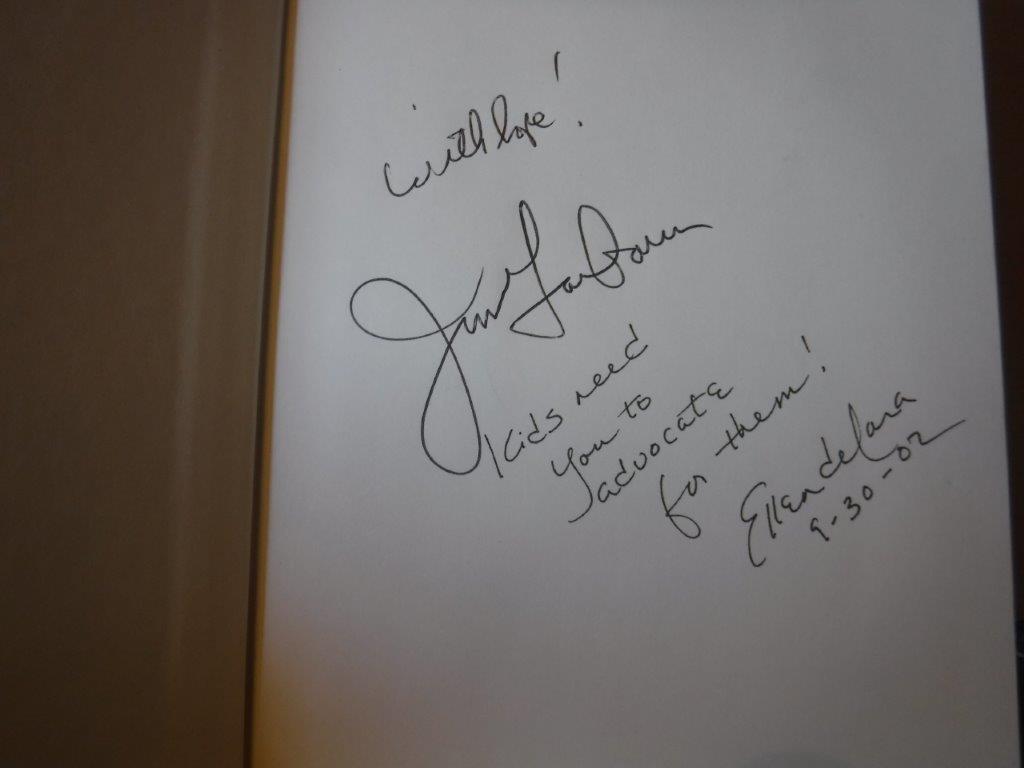 With hope!
Jim Garbarino
Kids need
you to
advocate
for them!
Ellen deLara
9-30-02